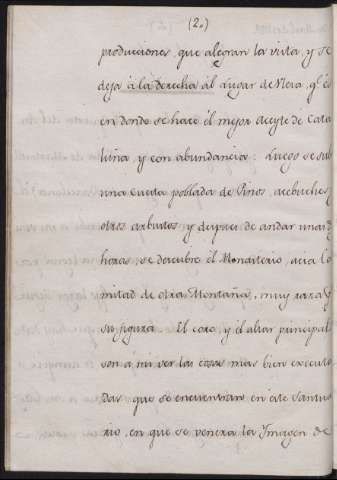 (2.)
producciones, que alegran la vista, y se
deja à la derecha àl Lugar de Nera, q.e es
en donde se hace el mejor Aceyte de Cata
luña, y con abundancia: Luego se sube
una Cuesta poblada de Pinos, acebuches, y
otros arbustos, y despues de andar unas
horas, se descubre el Monasterio, acia la
mitad de otra Montaña, muy rara
su figura. El coro, y el altar principal
son à mi ver las cosas mas bien executa
das que se encuentran en este Santua
rio, en que se venera la Ymagen de